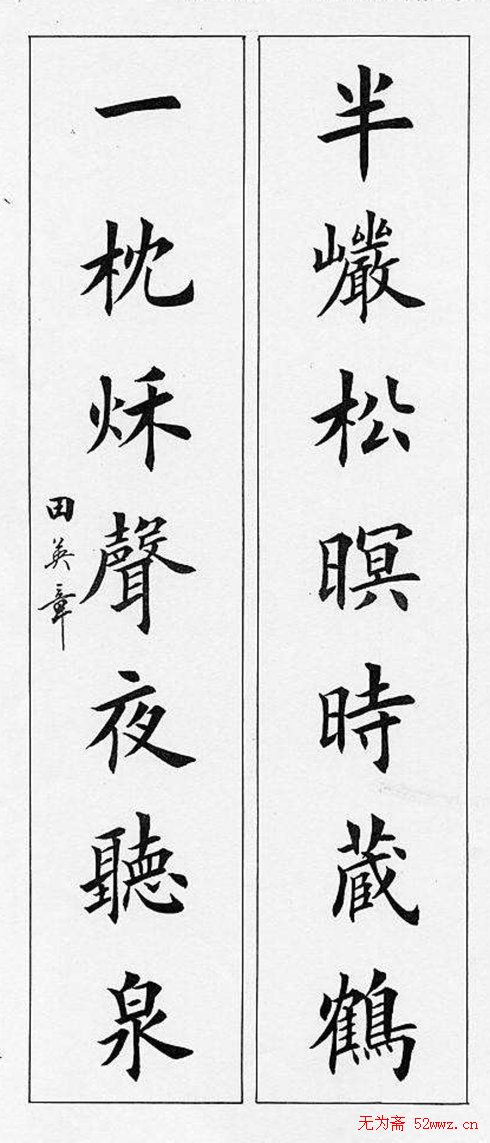 半巗松暝時蔵鶴
一枕秌聲夜聽泉
田英章
无为斋 52wwz.cn